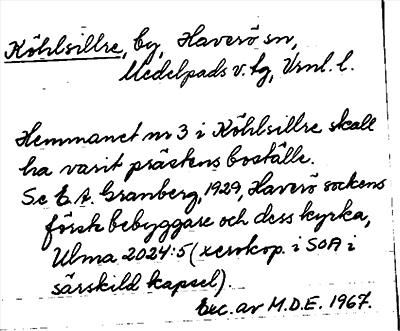 Köhlsillre, by, Haverö sn,
Medelpads v. tg, Vrnl. l.
Hemmanet nr 3 i Köhlsillre skall
ha varit prästens boställe.
Se E. A. Granberg, 1929, Haverö sockens
först bebyggare och dess kyrka,
Ulma 2024:5 (xerokop. i SOA i
särskild kapsel).
Exc. av M.D.E. 1967.